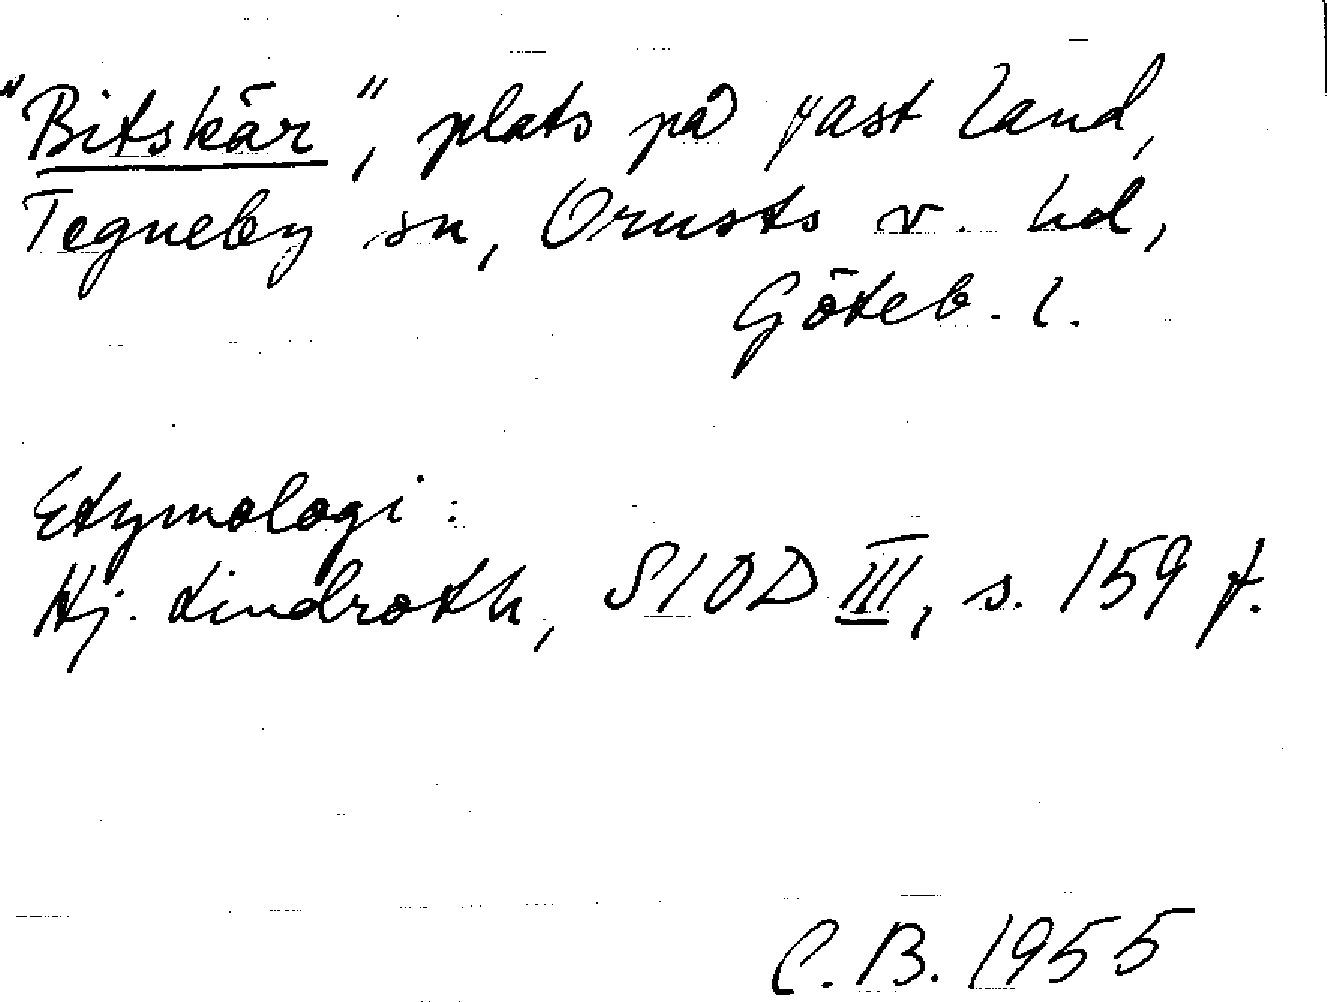 "Bitskär", plats på fast land,
Tegneby sn, Orusts v. hd,
Göteb. l.
Etymologi:
Hj. Lindroth, SIOD III, s. 159 f.
C. B. 1955